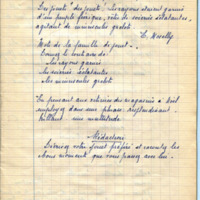 Des jouets ! des jouets ! les rayons étaient garnis
d'un peuple féerique, vêtu de soieries éclatantes,
agitant de minuscules grelots.
E. Moselly
Mots de la famille de jouet.
Donnez le contraire
des rayons garnis
des soieries éclatantes
des minuscules grelots
En pensant aux vitrines des magasins à Noël
employez dans une phrase : resplendissant
brillant une multitude
Rédaction
Décrivez votre jouet préféré et racontez les
bons moments que vous passez avec lui.